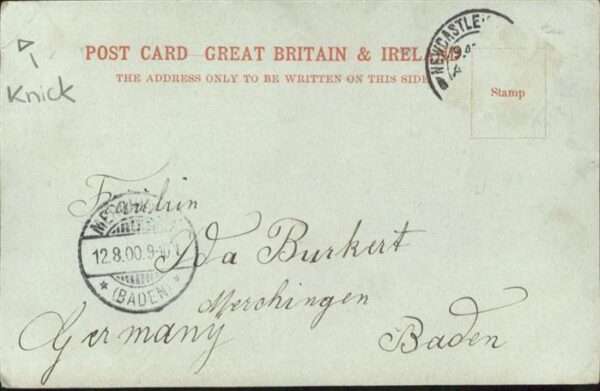 Knick
POST CARD GREAT BRITAIN & IRELAND
THE ADDRESS ONLY TO BE WRITTEN ON THIS SIDE
NEWCASTLE
Stamp
Fräulein
Ida Burkert
Merchingen
Germany Baden
12.8.00.9-10V
* (BADEN) *